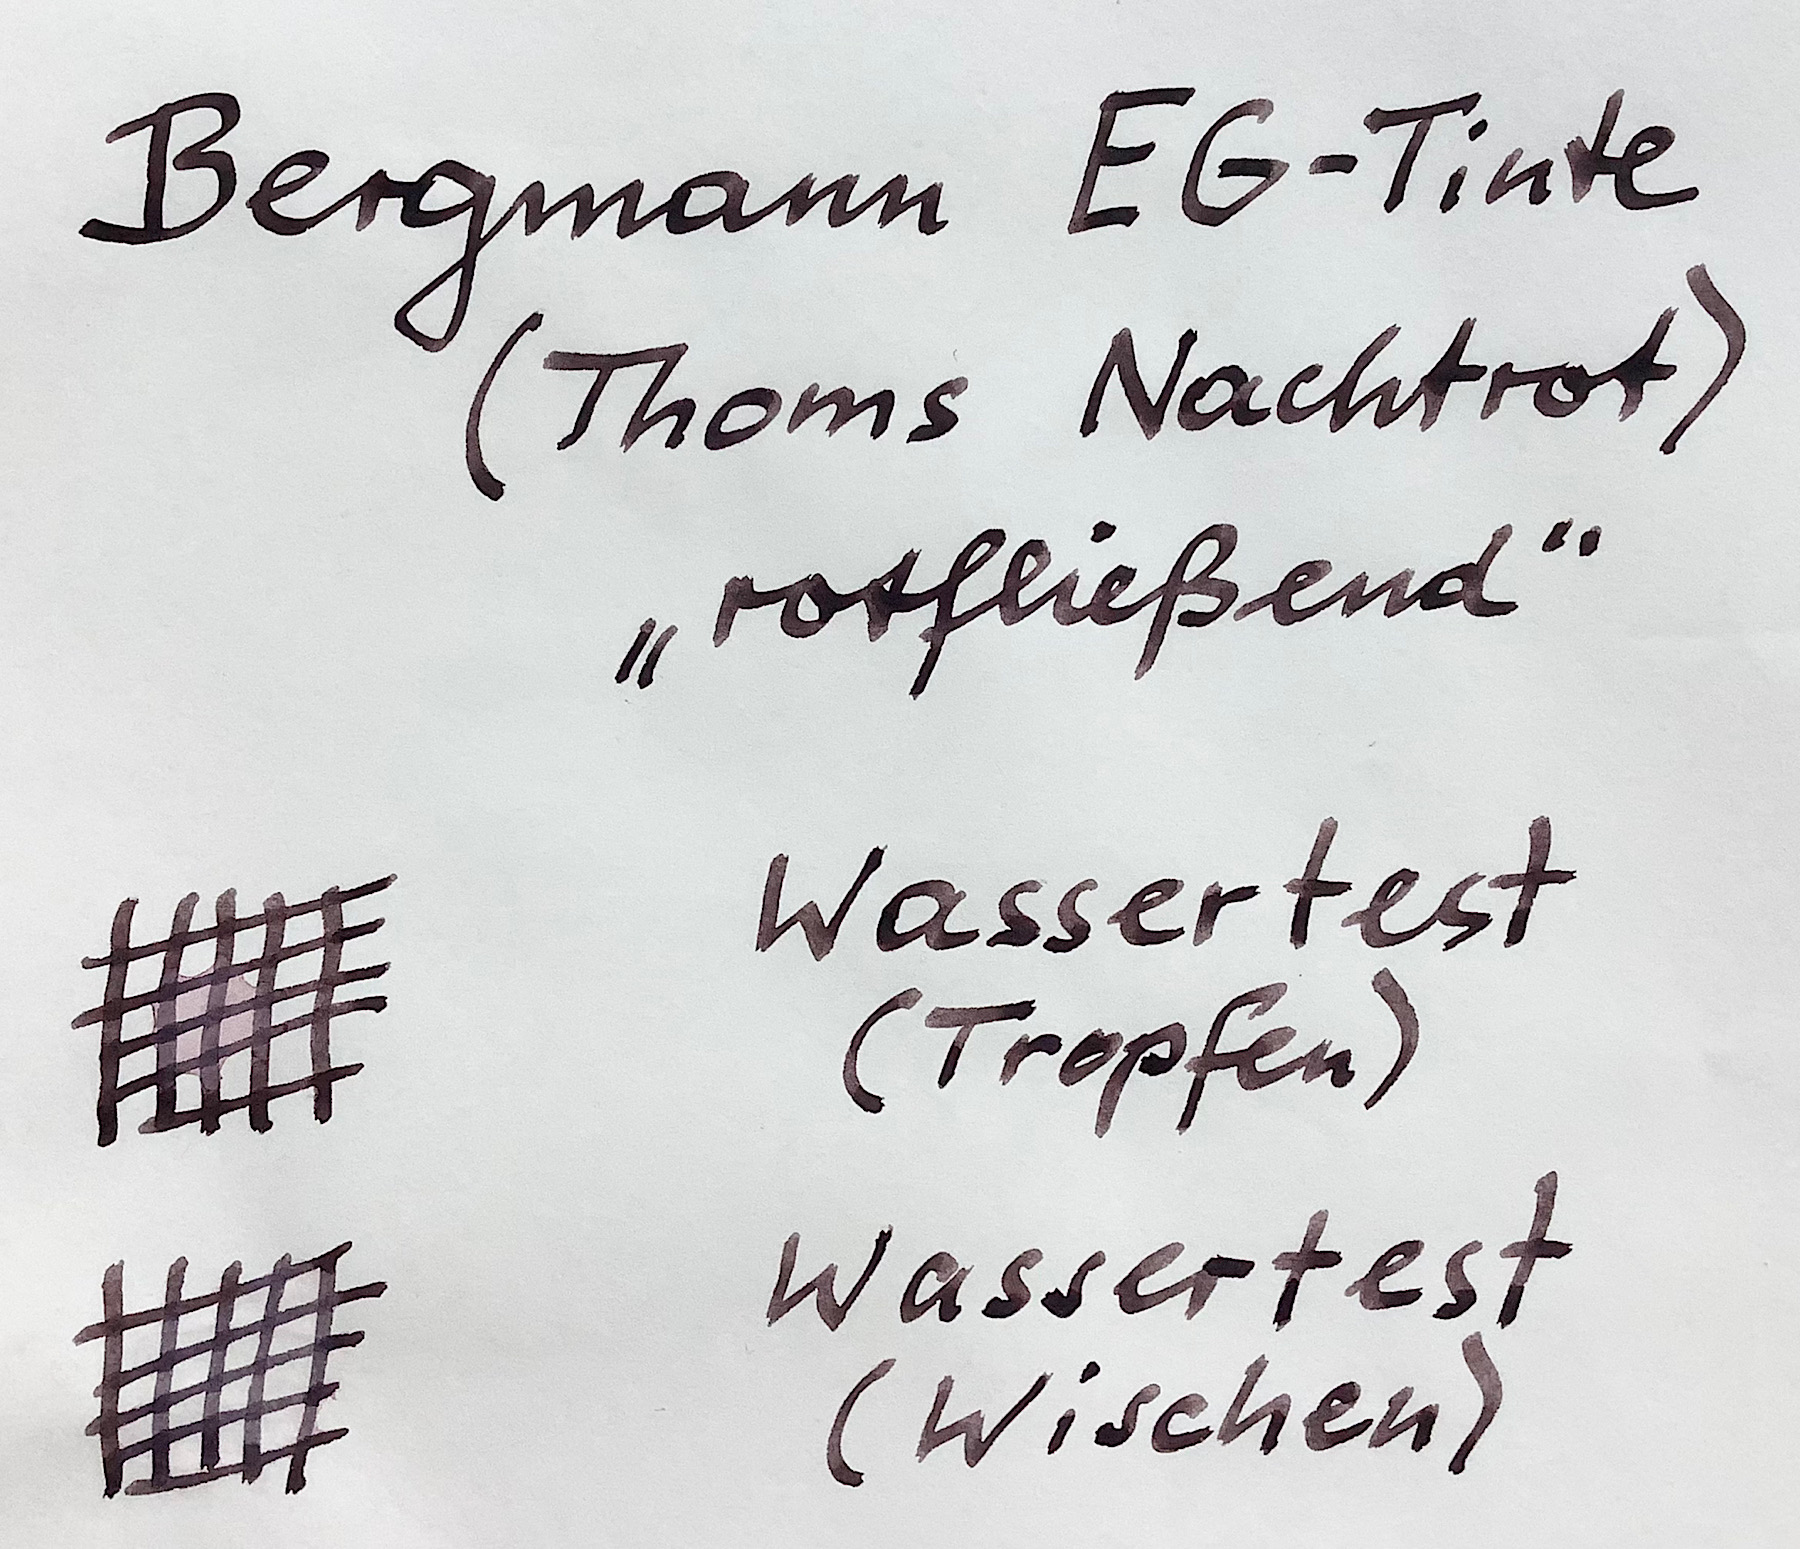 Bergmann EG-Tinte
(Thoms Nachtrot)
„rotfließend“
Wassertest
(Tropfen)
Wassertest
(Wischen)